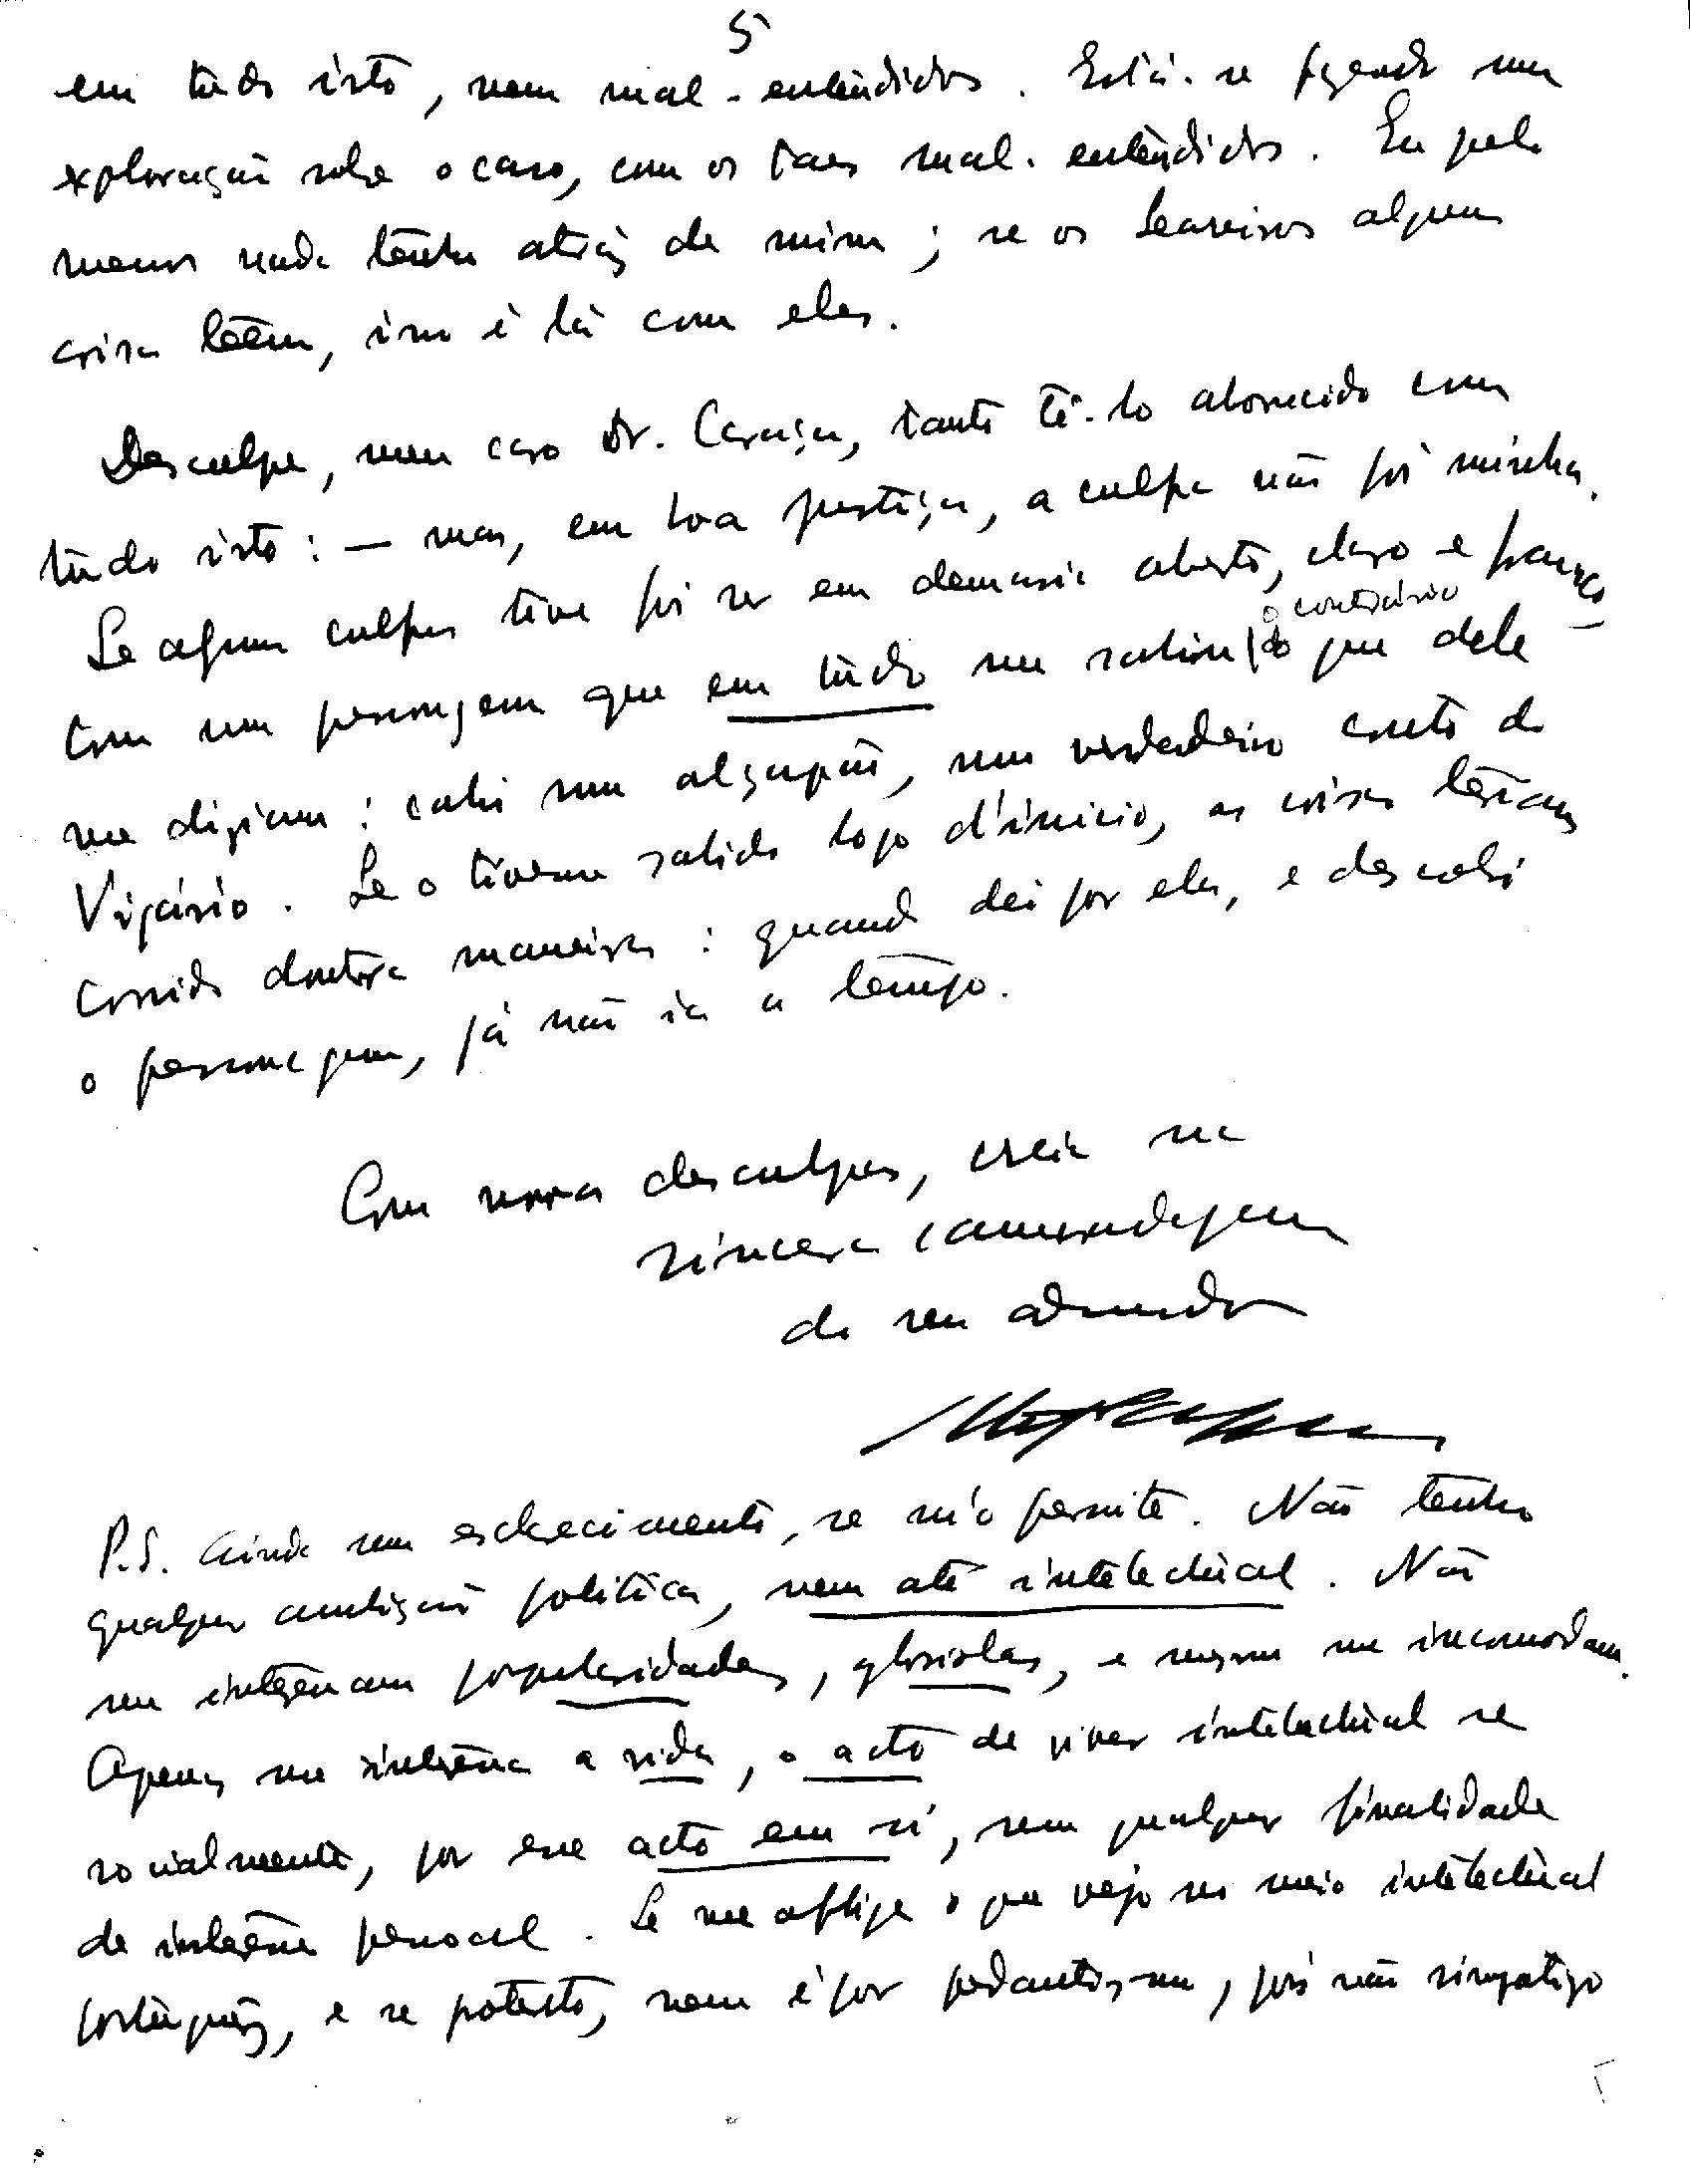 5
em tudo isto, nem mal-entendidos. Está-se fazendo uma
exploração sobre o caso, com os taes mal-entendidos. Eu pelo
menos nada tenho atrás de mim; se os Seareiros alguma
coisa teem, isso é lá com eles.
Desculpe, meu caro Dr. Caraça, tanto tê-lo aborrecido com
tudo isto: — mas, em boa justiça, a culpa não foi minha.
Se alguma culpa tive foi ser em demasia aberto, claro e franco
o contrário
com um personagem que em tudo me saíu do que dele
me diziam: cahi num alçapão, num verdadeiro conto do
Vigário. Se o tivesse sabido logo d'inicio, as coisas teriam
corrido doutra maneira: quando dei por elas, e descobri
o personagem, já não ia a tempo.
Com novas desculpas, creia na
sincera camaradagem
do seu admirador
P.S. Ainda um esclarecimento, se m'o permite. Não tenho
qualquer ambição politica, nem até intelectual. Não
me interessam popularidades, gloriolas, e mesmo me incomodam.
Apenas me interessa a vida, o acto de viver intelectual se
socialmente, por esse acto em si, sem qualquer finalidade
de interesse pessoal. Se me aflige o que vejo no meio intelectual
português, e se protesto, nem é por pedantismo, pois não simpatizo